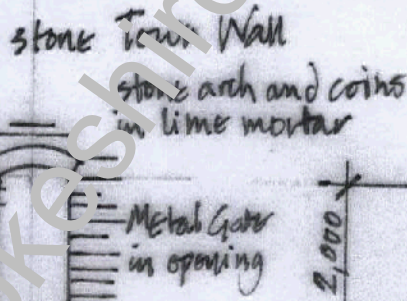 stone Town Wall
stone arch and coins
in lime mortar
Metal Gate
in opening
2,000